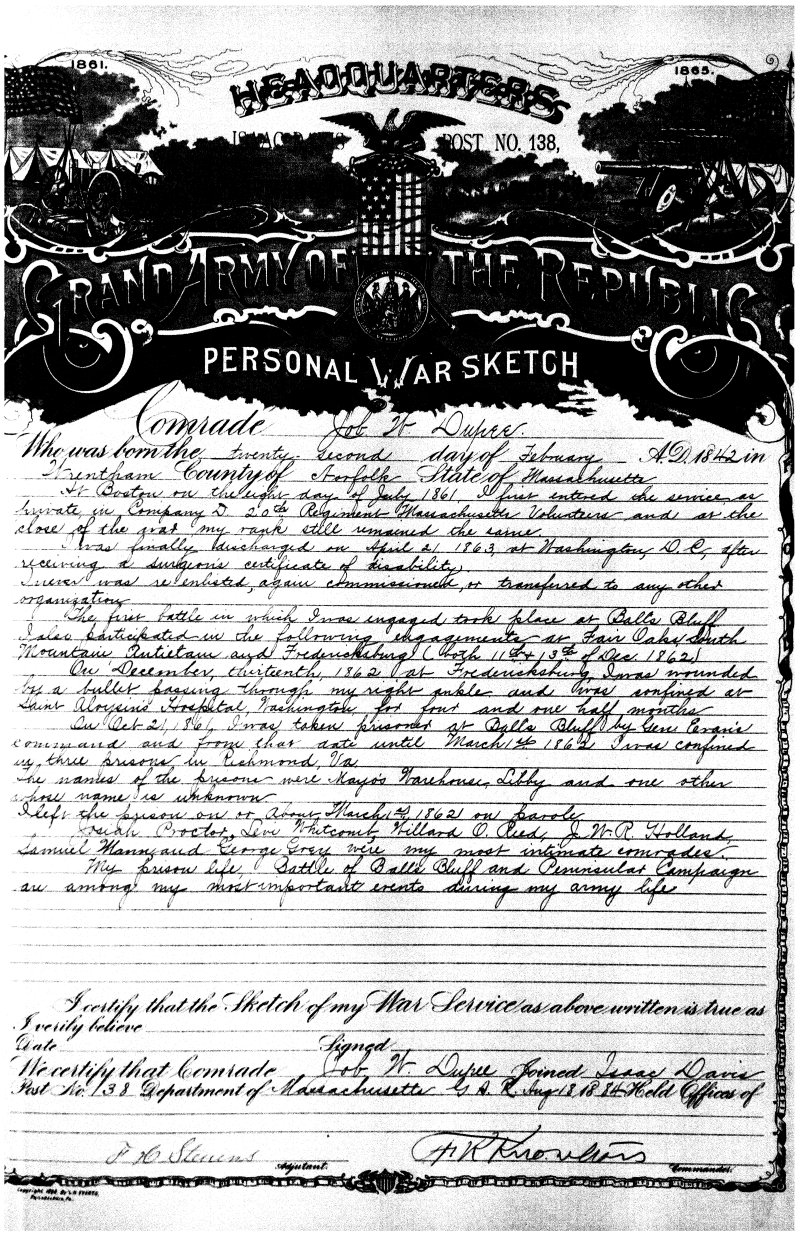 1861.
1865.
HEADQUARTERS
POST NO. 138,
GRAND ARMY OF THE REPUBLIC
PERSONAL WAR SKETCH
Comrade Job W Dupee
Who was born the twenty second day of February A.D. 1842 in
Wrentham County of Norfolk State of Massachusetts
At Boston on the eight day of July 1861 I first entered the service as
private in Company D 20th Regiment Massachusetts Volunteers and at the
close of the war my rank still remained the same.
I was finally discharged on April 21 1863, at Washington, D.C., after
receiving a surgeon's certificate of disability,
I never was re enlisted, again commissioned, or transferred to any other
organization
The first battle in which I was engaged took place at Balls Bluff
I also participated in the following engagements at Fair Oaks South
Mountain Antietam and Fredericksburg (both 11th & 13th of Dec. 1862)
On December, thirteenth, 1862 at Fredericksburg, I was wounded
by a bullet passing through my right ankle and I was confined at
Saint Aloysius Hospital Washington, for four and one half months
On Oct 21, 1861, I was taken prisoner at Balls Bluff by Gen Evan's
command and from that date until March 1st 1862 I was confined
in three prisons in Richmond, Va
The names of the prisons were Mayo's Warehouse, Libby and one other
whose name is unknown
I left the prison on or about March 1st 1862 on parole
Josiah Proctor, Levi Whitcomb, Willard O. Reed, J. W. R. Holland,
Samuel Mann, and George Grey were my most intimate comrades.
My prison life, Battle of Balls Bluff and Peninsular Campaign
are among my most important events during my army life
I certify that the Sketch of my War Service as above written is true as
I verily believe
Date Signed
We certify that Comrade Job W. Dupee Joined Isaac Davis
Post No. 138 Department of Massachusetts G. A. R. Aug 18 1884 Held Offices of
F H Stevens
Adjutant.
Commander.